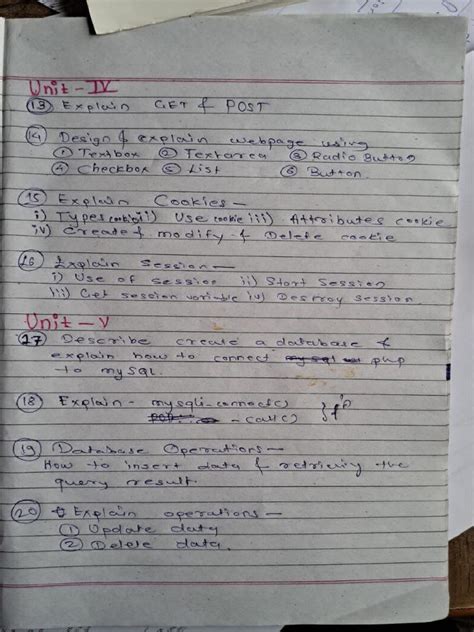 Unit - IV
(13) Explain GET & POST
(14) Design & explain webpage using
① Textbox ② Textarea ③ Radio Button
④ Checkbox ⑤ List ⑥ Button
(15) Explain Cookies -
i) Types cookie ii) Use cookie iii) Attributes cookie
iv) Create & modify & Delete cookie
(16) Explain Session -
i) Use of session ii) Start Session
iii) Get session variable iv) Destroy session
Unit - V
(17) Describe create a database &
explain how to connect php
to mySQL.
(18) Explain - mysqli-connect()
- call()
(19) Database Operations -
How to insert data & retrieving the
query result.
(20) Explain operations -
① Update data
② Delete data.